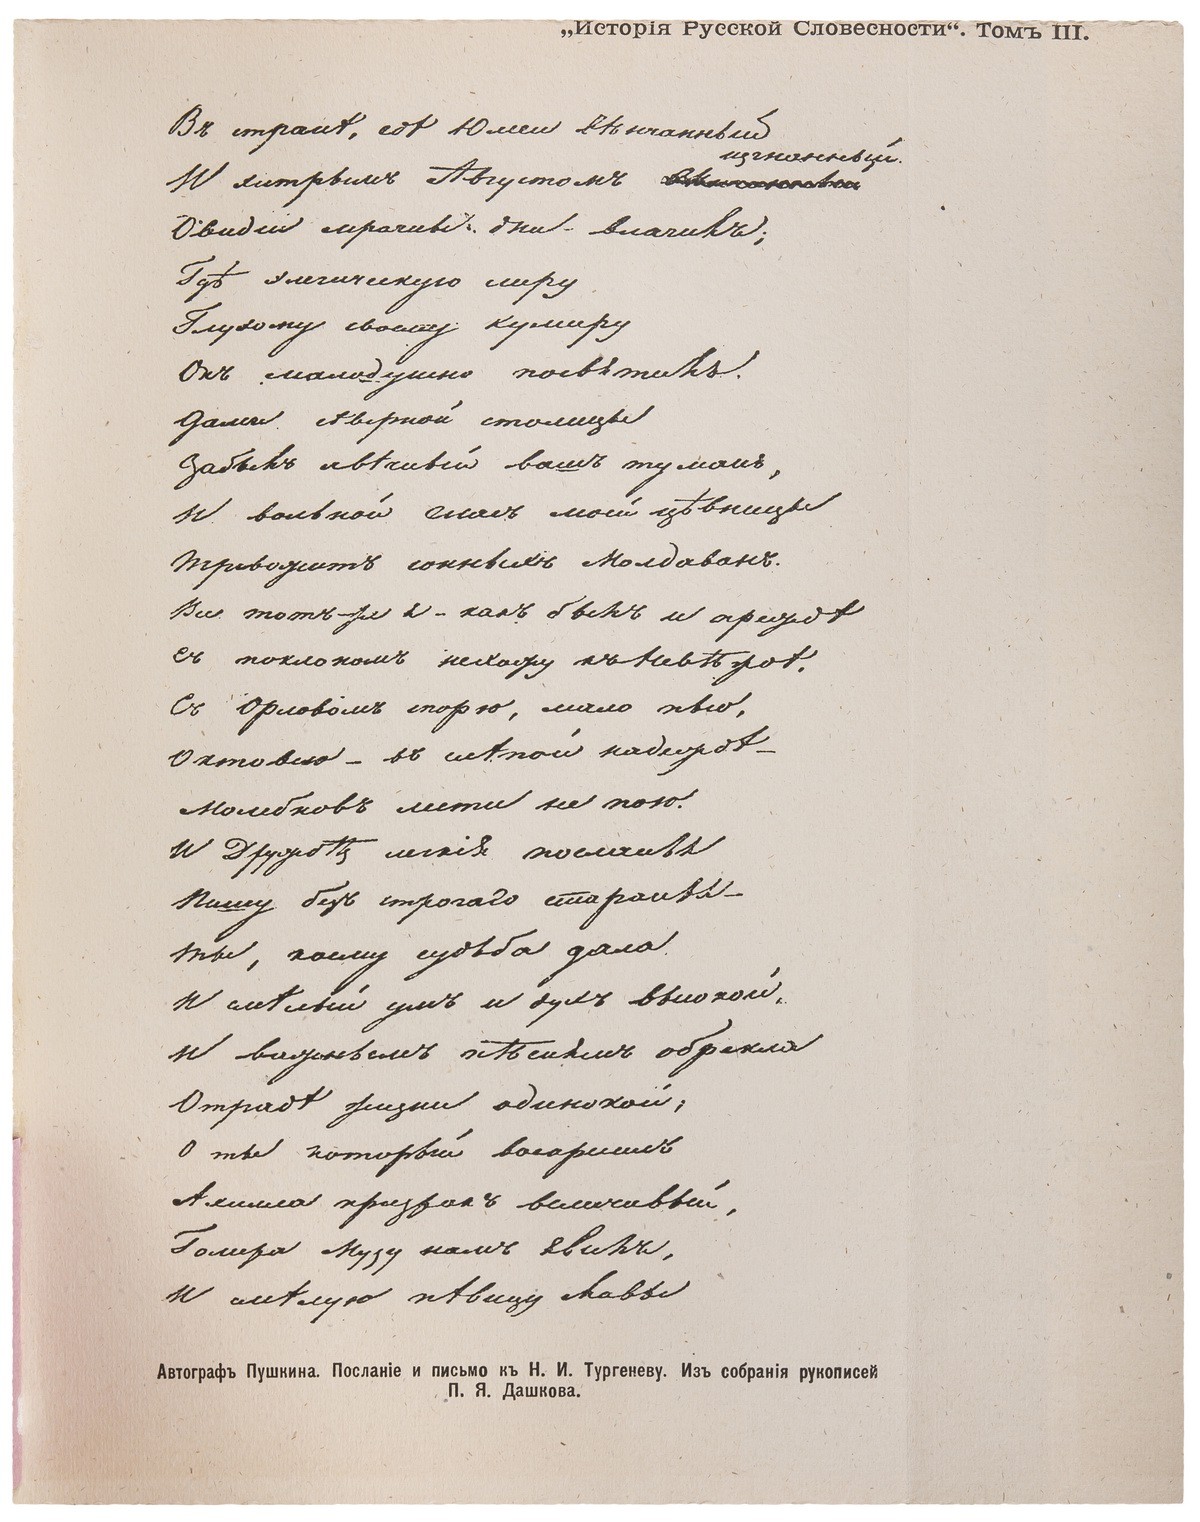 „Исторія Русской Словесности“. Томъ III.
Въ странѣ, гдѣ Юлией вѣнчанный
изгнанный
И хитрымъ Августомъ
Овидій мрачны дни влачилъ;
Гдѣ элегическую лиру
Глухому своему кумиру
Онъ малодушно посвѣтилъ.
Далече сѣверной столицы
Забылъ я вѣчный вашъ туманъ,
И вольной гласъ моей цѣвницы
Тревожитъ сонныхъ Молдаванъ.
Все тотъ-же я - какъ былъ и прежде
Съ поклономъ не хожу къ невѣждѣ,
Съ Орловымъ спорю, мало пью,
Октавію - въ слѣпой надеждѣ -
Молебновъ лести не пою.
И Дружбѣ легкія посланья
Пишу безъ строгаго старанья -
Ты, кому судьба дала
И смѣлый умъ и духъ высокой,
И важнымъ пѣснямъ обрекла
Отрадѣ жизни одинокой;
О ты который воскресилъ
Ахилла призракъ величавый,
Гомера Музу намъ явилъ,
И смѣлую пѣвицу славы
Автографъ Пушкина. Посланіе и письмо къ Н. И. Тургеневу. Изъ собранія рукописей
П. Я. Дашкова.